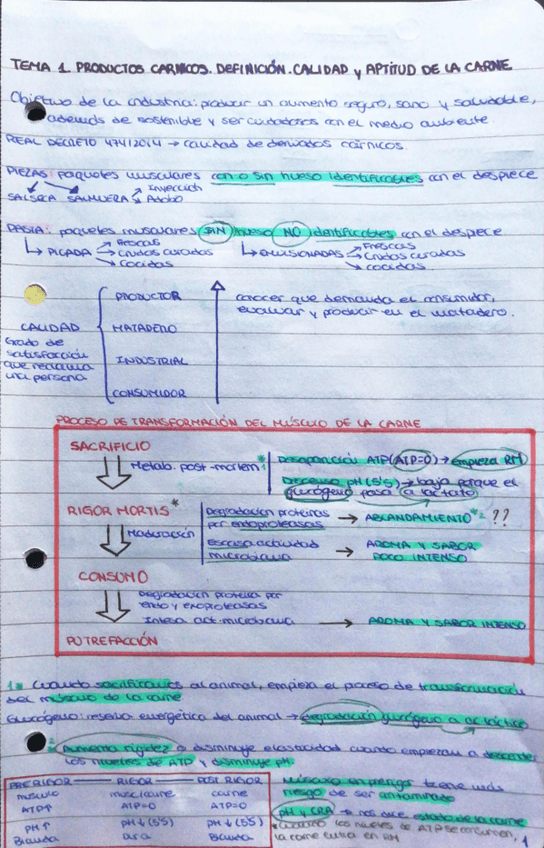 TEMA 1. PRODUCTOS CARNICOS. DEFINICIÓN. CALIDAD y APTITUD DE LA CARNE
Objetivo de la industria: producir un alimento seguro, sano y saludable,
además de sostenible y ser cuidadosos con el medio ambiente.
REAL DECRETO 474/2014 → calidad de derivados cárnicos.
PIEZAS: paquetes musculares con o sin hueso identificables con el despiece
SALSEA SALMUERA → Inyección
→ Adobo
PASTA: paquetes musculares SIN hueso NO identificables con el despiece
↳ PICADA → Frescas ↳ EMULSIONADAS → Frescas
→ Crudas curadas → Crudas curadas
→ cocidas → cocidas.
PRODUCTOR conocer que demanda el consumidor,
evaluar y producir en el matadero.
CALIDAD MATADERO
Grado de
satisfacción INDUSTRIAL
que reclama
una persona CONSUMIDOR
PROCESO DE TRANSFORMACIÓN DEL MÚSCULO DE LA CARNE
SACRIFICIO
Metabo. post-mortem * Desaparición ATP (ATP=0) → empieza RM
Descenso pH (5'5) → baja porque el
glucógeno pasa a lactato
RIGOR MORTIS * Degradación proteínas
por endoproteasas → ABLANDAMIENTO * ??
Maduración
Escasa actividad
microbiana → AROMA Y SABOR
POCO INTENSO
CONSUMO
Degradación proteica por
endo y exoproteasas
Intensa act. microbiana → AROMA Y SABOR INTENSO
PUTREFACCIÓN
1* Cuando sacrificamos al animal, empieza el proceso de transformación
del músculo de la carne
Glucógeno: reserva energética del animal → degradación glucógeno a ac láctico
Aumenta rigidez o disminuye elasticidad cuando empiezan a descender
los niveles de ATP y disminuye pH.
PRERIGOR RIGOR POST RIGOR
músculo musc/carne carne
ATP↑ ATP=0 ATP=0
pH↑ pH↓(5'5) pH↓(5'5)
Blanda dura Blanda
Músculo en prerigor tiene más
riesgo de ser contaminado
pH y CRA → nos dice estado de la carne
* cuando los niveles de ATP se consumen,
la carne entra en RM
1